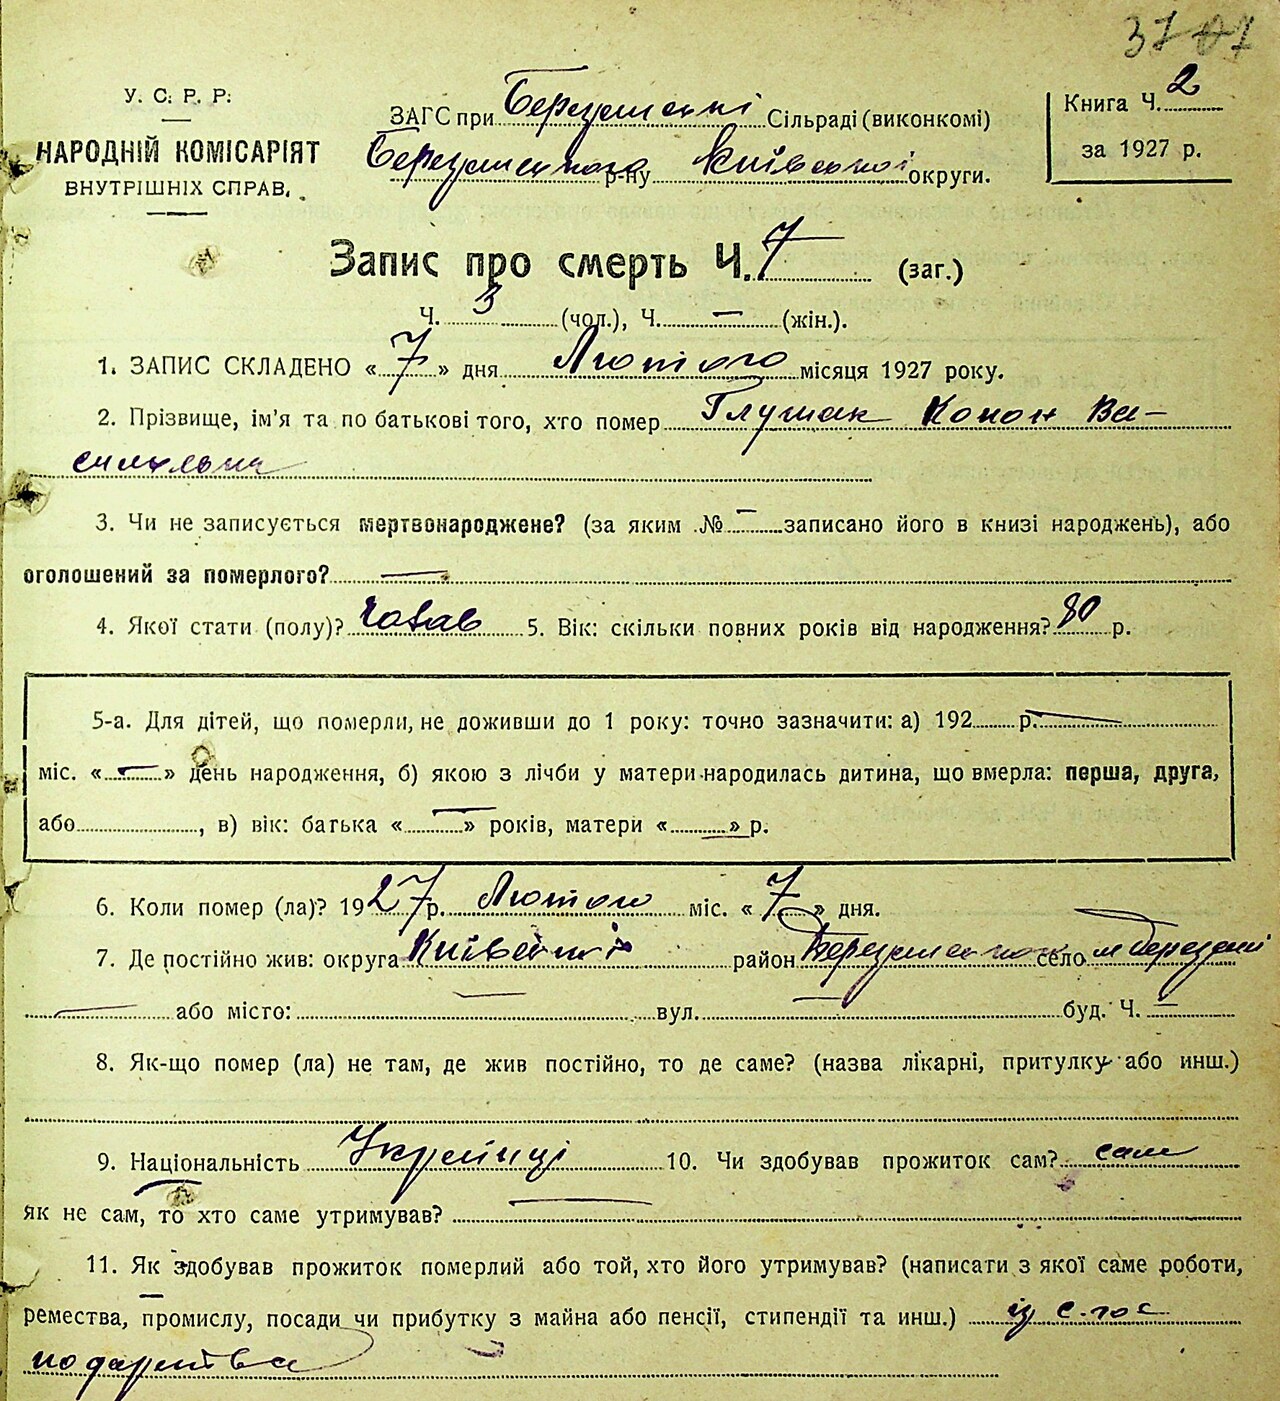 37
У. С. Р. Р.
НАРОДНІЙ КОМІСАРІЯТ
ВНУТРІШНІХ СПРАВ.
ЗАГС при Березанскі Сільраді (виконкомі)
Березанского р-ну Київської округи.
Книга Ч. 2
за 1927 р.
Запис про смерть Ч. 7 (заг.)
Ч. 3 (чол.), Ч. — (жін.).
1. ЗАПИС СКЛАДЕНО « 7 » дня Лютого місяця 1927 року.
2. Прізвище, ім'я та по батькові того, хто помер Глушак Конон Ва-
3. Чи не записується мертвонароджене? (за яким № — записано його в книзі народжень), або
оголошений за померлого? —
4. Якої стати (полу)? чолов 5. Вік: скільки повних років від народження? 80 р.
5-а. Для дітей, що померли, не доживши до 1 року: точно зазначити: а) 192 р. —
міс. « — » день народження, б) якою з лічби у матери народилась дитина, що вмерла: перша, друга,
або , в) вік: батька « — » років, матери « — » р.
6. Коли помер (ла)? 1927 р. Лютого міс. « 7 » дня.
7. Де постійно жив: округа Київські район село м Березані
— або місто: — вул. — буд. Ч. —
8. Як-що помер (ла) не там, де жив постійно, то де саме? (назва лікарні, притулку або инш.)
9. Національність Украінці 10. Чи здобував прожиток сам? сам
Як не сам, то хто саме утримував? —
11. Як здобував прожиток померлий або той, хто його утримував? (написати з якої саме роботи,
ремества, промислу, посади чи прибутку з майна або пенсії, стипендії та инш.) із с.-гос
подарства